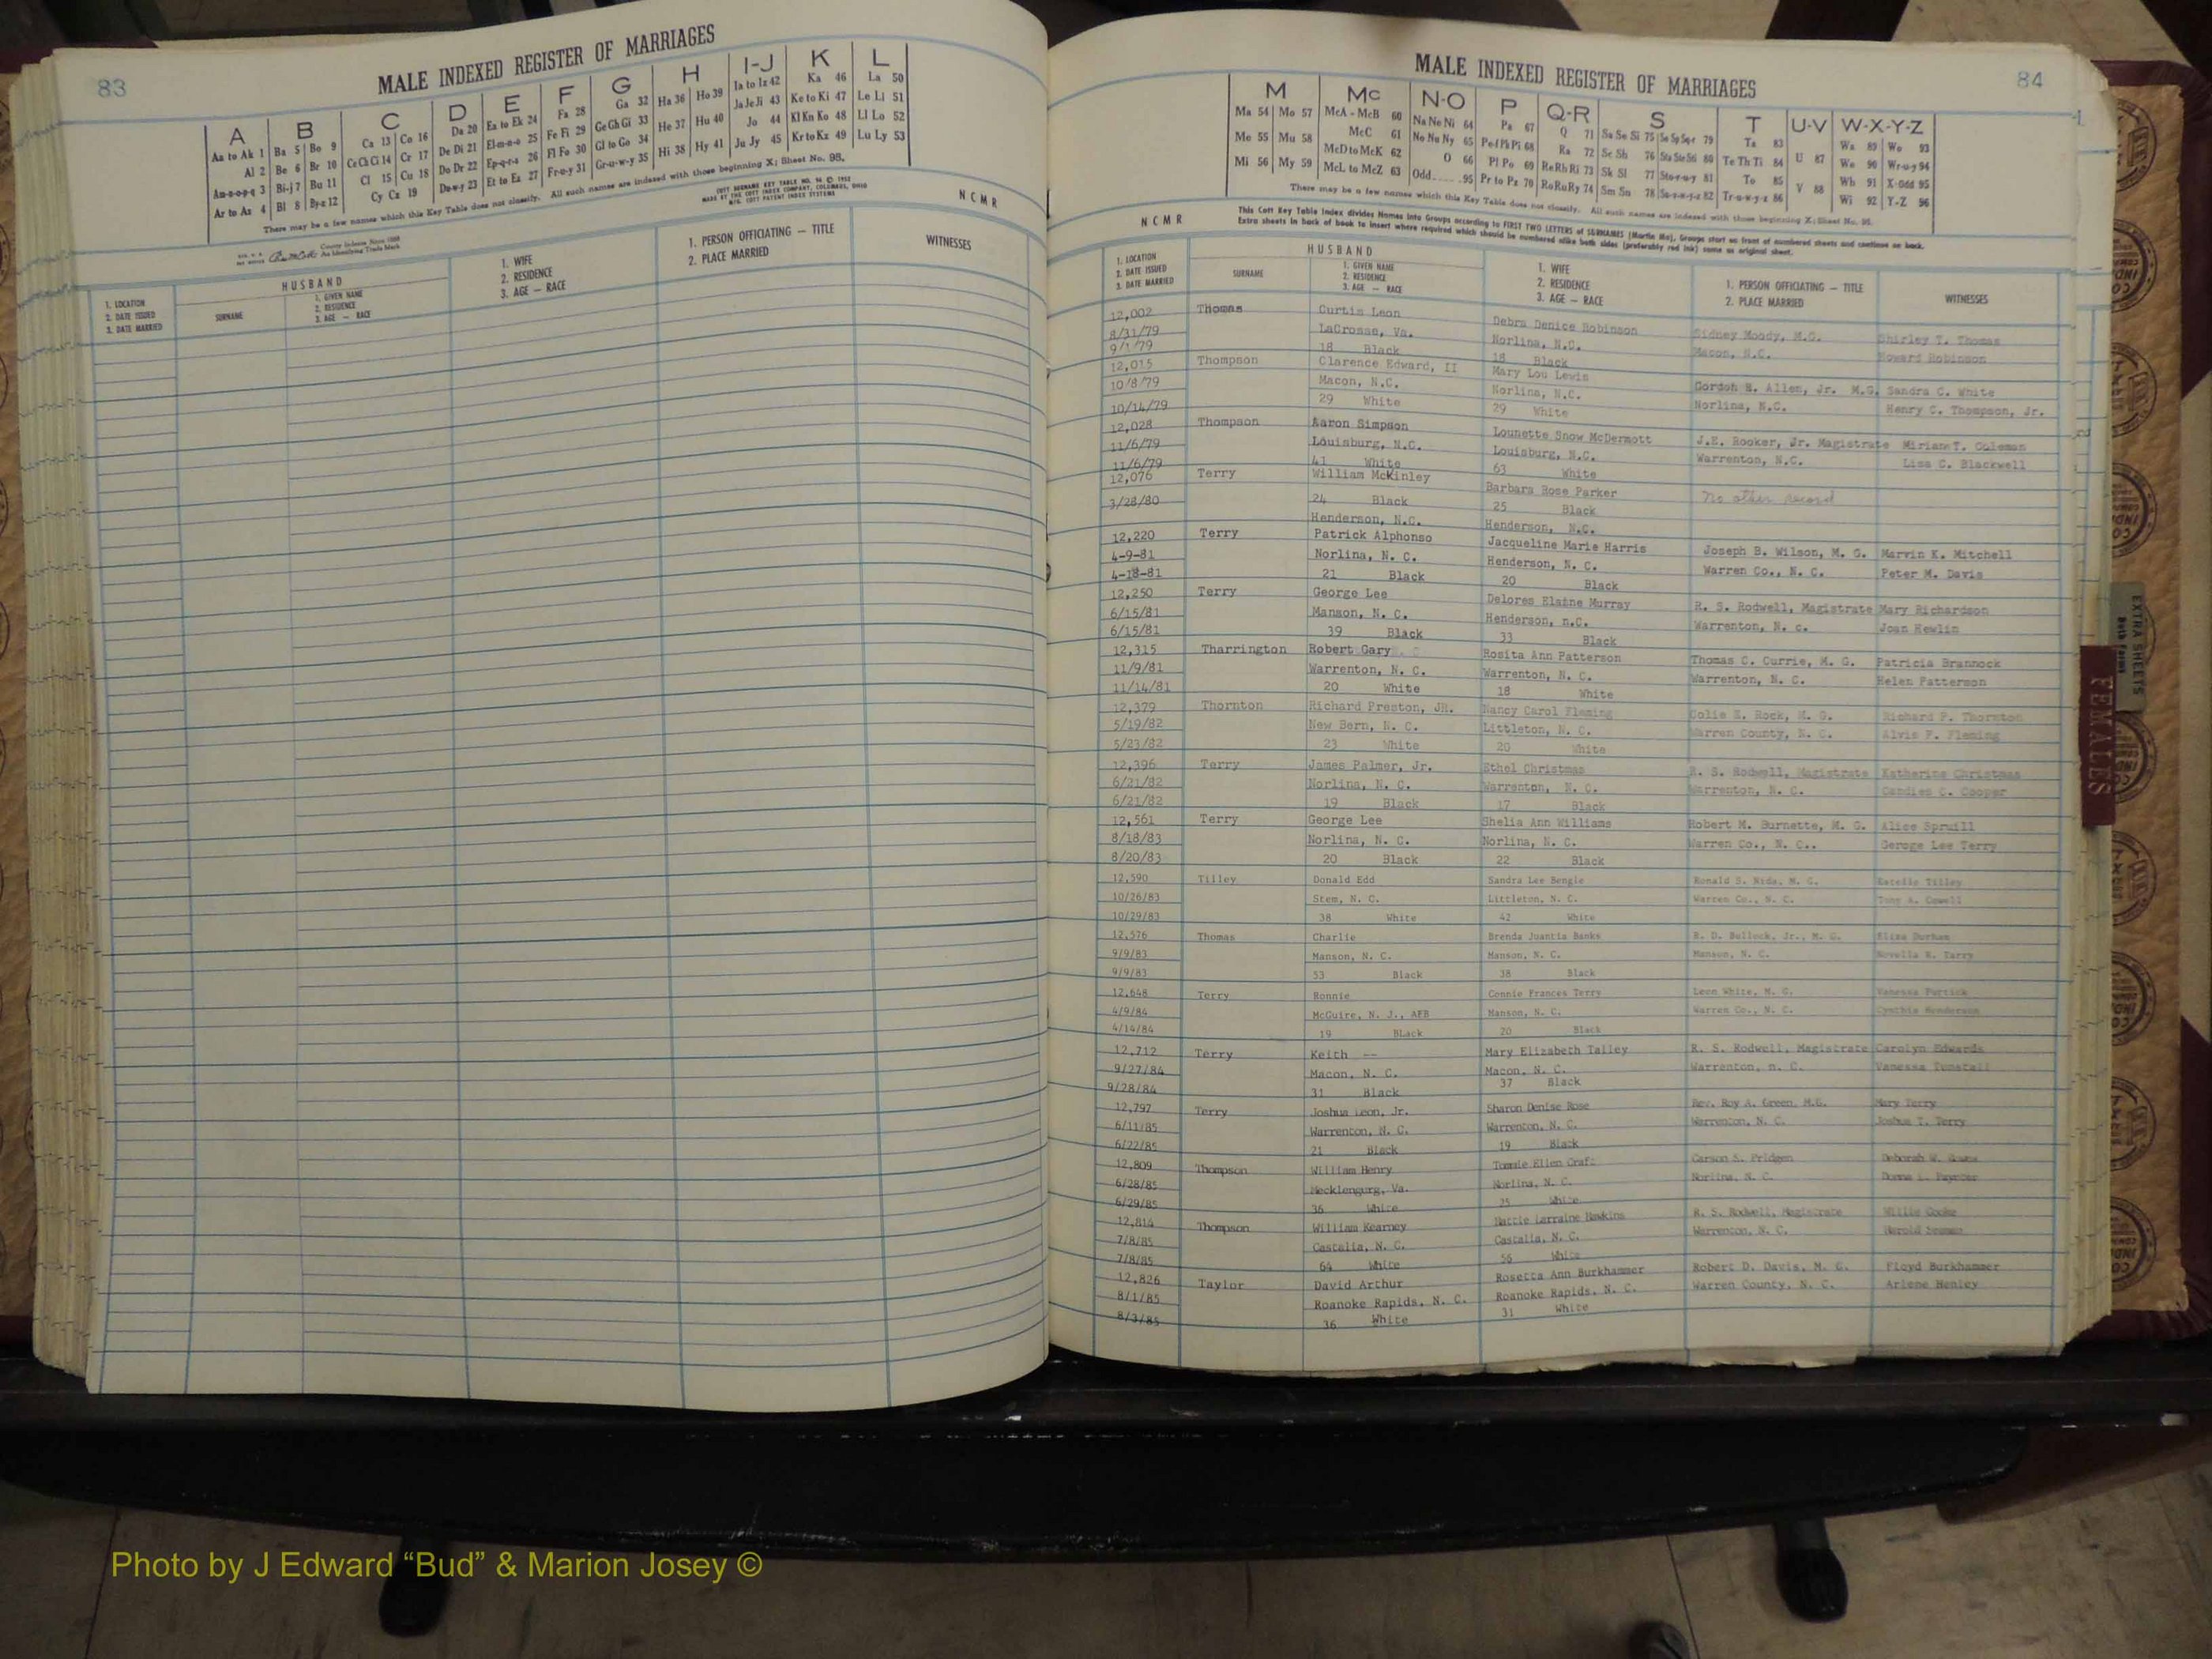 83
MALE INDEXED REGISTER OF MARRIAGES
A B C D E F G H I-J K L
Aa to Ak 1 Ba 5 Bo 9 Ca 13 Co 16 Da 20 Ea to Ek 24 Fa 28 Ga 32 Ha 36 Ho 39 Ia to Iz 42 Ka 46 La 50
Al 2 Be 6 Br 10 Ce Ch Ci 14 Cr 17 De Di 21 El-m-n-o 25 Fe Fi 29 Ge Gh Gi 33 He 37 Hu 40 Ja Je Ji 43 Ke to Ki 47 Le Li 51
An-o-p-q 3 Bi-j 7 Bu 11 Cl 15 Cu 18 Do Dr 22 Ep-q-r-s 26 Fl Fo 30 Gl to Go 34 Hi 38 Hy 41 Jo 44 Kl Kn Ko 48 Ll Lo 52
Ar to Az 4 Bl 8 By-z 12 Cy Cz 19 Du-w-y 23 Et to Ez 27 Fr-u-y 31 Gr-u-w-y 35 Ju Jy 45 Kr to Kz 49 Lu Ly 53
There may be a few names which this Key Table does not classify. All such names are indexed with those beginning X; Sheet No. 98.
COTT SURNAME KEY TABLE NO. 96 © 1952
MADE BY THE COTT INDEX COMPANY, COLUMBUS, OHIO
MFG. COTT PATENT INDEX SYSTEMS
NCMR
County Indexes Since 1888
An Identifying Trade Mark
1. LOCATION
2. DATE ISSUED
3. DATE MARRIED
HUSBAND
SURNAME
1. GIVEN NAME
2. RESIDENCE
3. AGE — RACE
1. WIFE
2. RESIDENCE
3. AGE — RACE
1. PERSON OFFICIATING — TITLE
2. PLACE MARRIED
WITNESSES
MALE INDEXED REGISTER OF MARRIAGES
84
M Mc N-O P Q-R S T U-V W-X-Y-Z
Ma 54 Mo 57 McA - McB 60 Na Ne Ni 64 Pa 67 Q 71 Sa Sc Si 75 79 Ta 83 Wa 89 Wo 93
Me 55 Mu 58 McC 61 No Nu Ny 65 Pe-f Ph Pi 68 Ra 72 Se Sh 76 Sta Ste Sti 80 Te Th Ti 84 U 87 We 90 Wr-u-y 94
Mi 56 My 59 McD to McK 62 O 66 Pl Po 69 Re Rh Ri 73 Sk Sl 77 Sto-r-u-y 81 To 85 V 88 Wh 91 X-Odd 95
McL to McZ 63 Odd 95 Pr to Pz 70 Ro Ru Ry 74 Sm Sn 78 82 Tr-u-w-y-z 86 Wi 92 Y-Z 96
There may be a few names which this Key Table does not classify. All such names are indexed with those beginning X; Sheet No. 98.
NCMR
This Cott Key Table Index divides Names into Groups according to FIRST TWO LETTERS of SURNAMES (Martin Ma). Groups start on front of numbered sheets and continue on back.
Extra sheets in back of book to insert where required which should be numbered alike both sides (preferably red ink) same as original sheet.
1. LOCATION
2. DATE ISSUED
3. DATE MARRIED
HUSBAND
SURNAME
1. GIVEN NAME
2. RESIDENCE
3. AGE — RACE
1. WIFE
2. RESIDENCE
3. AGE — RACE
1. PERSON OFFICIATING — TITLE
2. PLACE MARRIED
WITNESSES
12,002 Thomas Curtis Leon Debra Denice Robinson Sidney Moody, M.G. Shirley T. Thomas
8/31/79 LaCrosse, Va. Norlina, N.C. Macon, N.C. Howard Robinson
9/1/79 18 Black 18 Black
12,015 Thompson Clarence Edward, II Mary Lou Lewis Gordon E. Allen, Jr. M.G. Sandra C. White
10/8/79 Macon, N.C. Norlina, N.C. Norlina, N.C. Henry C. Thompson, Jr.
10/14/79 29 White 29 White
12,028 Thompson Aaron Simpson Lounette Snow McDermott J.E. Rooker, Jr. Magistrate Miriam T. Coleman
11/6/79 Louisburg, N.C. Louisburg, N.C. Warrenton, N.C. Lisa C. Blackwell
11/6/79 41 White 63 White
12,076 Terry William McKinley Barbara Rose Parker No other record
3/28/80 24 Black 25 Black
Henderson, N.C. Henderson, N.C.
12,220 Terry Patrick Alphonso Jacqueline Marie Harris Joseph B. Wilson, M. G. Marvin K. Mitchell
4-9-81 Norlina, N. C. Henderson, N. C. Warren Co., N. C. Peter M. Davis
4-18-81 21 Black 20 Black
12,250 Terry George Lee Delores Elaine Murray R. S. Rodwell, Magistrate Mary Richardson
6/15/81 Manson, N. C. Henderson, n.C. Warrenton, N. c. Joan Hewlin
6/15/81 39 Black 33 Black
12,315 Tharrington Robert Gary Rosita Ann Patterson Thomas C. Currie, M. G. Patricia Brannock
11/9/81 Warrenton, N. C. Warrenton, N. C. Warrenton, N. C. Helen Patterson
11/14/81 20 White 18 White
12,379 Thornton Richard Preston, JR. Nancy Carol Fleming Colie E. Rock, M. G. Richard P. Thornton
5/19/82 New Bern, N. C. Littleton, N. C. Warren County, N. C. Alvis F. Fleming
5/23/82 23 White 20 White
12,396 Terry James Palmer, Jr. Ethel Christmas R. S. Rodwell, Magistrate Katherine Christmas
6/21/82 Norlina, N. C. Warrenton, N. C. Warrenton, N. C. Candies C. Cooper
6/21/82 19 Black 17 Black
12,561 Terry George Lee Shelia Ann Williams Robert M. Burnette, M. G. Alice Spruill
8/18/83 Norlina, N. C. Norlina, N. C. Warren Co., N. C.. Geroge Lee Terry
8/20/83 20 Black 22 Black
12,590 Tilley Donald Edd Sandra Lee Bengle Ronald S. Nids, M. G. Estelle Tilley
10/26/83 Stem, N. C. Littleton, N. C. Warren Co., N. C. Tony A. Cowell
10/29/83 38 White 42 White
12,576 Thomas Charlie Brenda Juantia Banks R. D. Bullock, Jr., M. G. Eliza Durham
9/9/83 Manson, N. C. Manson, N. C. Manson, N. C. Novella R. Terry
9/9/83 53 Black 38 Black
12,648 Terry Ronnie Connie Frances Terry Leon White, M. G. Vanessa
4/9/84 McGuire, N. J., AFB Manson, N. C. Warren Co., N. C. Cynthia Henderson
4/14/84 19 Black 20 Black
12,712 Terry Keith -- Mary Elizabeth Talley R. S. Rodwell, Magistrate Carolyn Edwards
9/27/84 Macon, N. C. Macon, N. C. Warrenton, n. C. Vanessa Tunstall
9/28/84 31 Black 37 Black
12,797 Terry Joshua Leon, Jr. Sharon Denise Rose Rev. Roy A. Green, M.G. Mary Terry
6/11/85 Warrenton, N. C. Warrenton, N. C. Warrenton, N. C. Joshua T. Terry
6/22/85 21 Black 19 Black
12,809 Thompson William Henry Tommie Ellen Craft Carson S. Pridgen Deborah W.
6/28/85 Mecklengurg, Va. Norlina, N. C. Norlina, N. C. Donna L. Paynter
6/29/85 36 White 25 White
12,814 Thompson William Kearney Hattie Larraine Hawkins R. S. Rodwell, Magistrate Willie Cooke
7/8/85 Castalia, N. C. Castalia, N. C. Warrenton, N. C. Harold
7/8/85 64 White 56 White
12,826 Taylor David Arthur Rosetta Ann Burkhammer Robert D. Davis, M. G. Floyd Burkhammer
8/1/85 Roanoke Rapids, N. C. Roanoke Rapids, N. C. Warren County, N. C. Arlene Henley
8/3/85 36 White 31 White
EXTRA SHEETS
FEMALES
Photo by J Edward “Bud” & Marion Josey ©